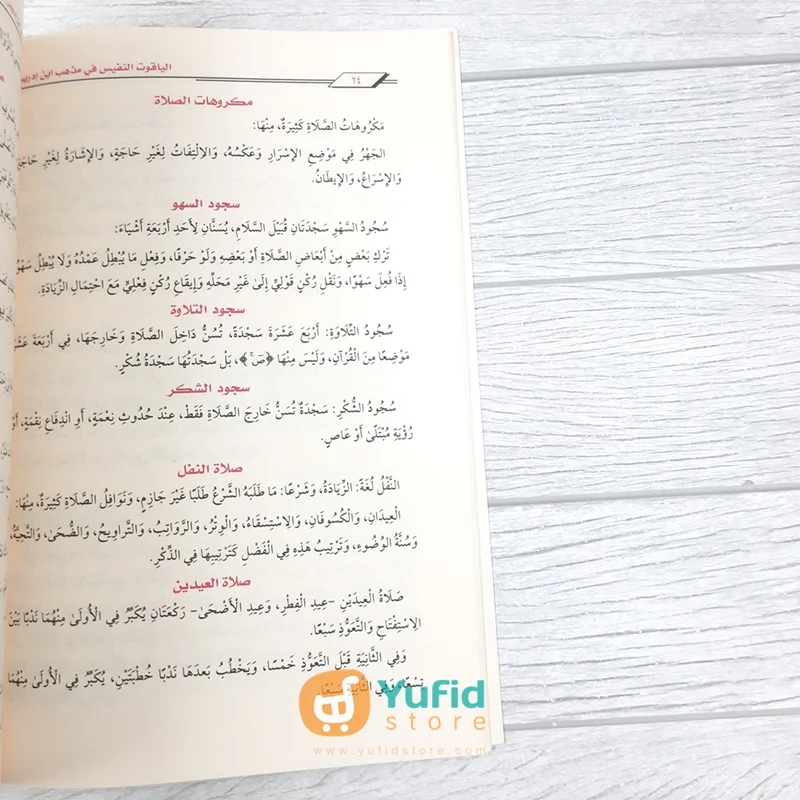 الياقوت النفيس في مذهب ابن إدريس
٢٤
مكروهات الصلاة
مَكْرُوهَاتُ الصَّلَاةِ كَثِيرَةٌ، مِنْهَا:
الجَهْرُ فِي مَوْضِعِ الإِسْرَارِ وَعَكْسُهُ، وَالِالْتِفَاتُ لِغَيْرِ حَاجَةٍ، وَالإِشَارَةُ لِغَيْرِ حَاجَةٍ
وَالإِسْرَاعُ، وَالإِيطَانُ.
سجود السهو
سُجُودُ السَّهْوِ سَجْدَتَانِ قُبَيْلَ السَّلَامِ، يُسَنَّانِ لِأَحَدِ أَرْبَعَةِ أَشْيَاءَ:
تَرْكِ بَعْضٍ مِنْ أَبْعَاضِ الصَّلَاةِ أَوْ بَعْضِهِ وَلَوْ حَرْفًا، وَفِعْلِ مَا يُبْطِلُ عَمْدُهُ وَلَا يُبْطِلُ سَهْوُهُ
إِذَا فُعِلَ سَهْوًا، وَنَقْلِ رُكْنٍ قَوْلِيٍّ إِلَىٰ غَيْرِ مَحَلِّهِ وَإِيقَاعِ رُكْنٍ فِعْلِيٍّ مَعَ احْتِمَالِ الزِّيَادَةِ.
سجود التلاوة
سُجُودُ التِّلَاوَةِ: أَرْبَعَ عَشَرَةَ سَجْدَةً، تُسَنُّ دَاخِلَ الصَّلَاةِ وَخَارِجَهَا، فِي أَرْبَعَةَ عَشَرَ
مَوْضِعًا مِنَ الْقُرْآنِ، وَلَيْسَ مِنْهَا ﴿صٓ﴾، بَلْ سَجْدَتُهَا سَجْدَةُ شُكْرٍ.
سجود الشكر
سُجُودُ الشُّكْرِ: سَجْدَةٌ تُسَنُّ خَارِجَ الصَّلَاةِ فَقَطْ، عِنْدَ حُدُوثِ نِعْمَةٍ، أَوِ انْدِفَاعِ نِقْمَةٍ، أَوْ
رُؤْيَةِ مُبْتَلًىٰ أَوْ عَاصٍ.
صلاة النفل
النَّفْلُ لُغَةً: الزِّيَادَةُ، وَشَرْعًا: مَا طَلَبَهُ الشَّرْعُ طَلَبًا غَيْرَ جَازِمٍ، وَنَوَافِلُ الصَّلَاةِ كَثِيرَةٌ، مِنْهَا:
الْعِيدَانِ، وَالْكُسُوفَانِ، وَالِاسْتِسْقَاءُ، وَالْوِتْرُ، وَالرَّوَاتِبُ، وَالتَّرَاوِيحُ، وَالضُّحَىٰ، وَالتَّحِيَّةُ،
وَسُنَّةُ الْوُضُوءِ، وَتَرْتِيبُ هَذِهِ فِي الْفَضْلِ كَتَرْتِيبِهَا فِي الذِّكْرِ.
صلاة العيدين
صَلَاةُ الْعِيدَيْنِ -عِيدِ الْفِطْرِ، وَعِيدِ الْأَضْحَىٰ- رَكْعَتَانِ يُكَبِّرُ فِي الْأُولَىٰ مِنْهُمَا نَدْبًا بَيْنَ
الِاسْتِفْتَاحِ وَالتَّعَوُّذِ سَبْعًا.
وَفِي الثَّانِيَةِ قَبْلَ التَّعَوُّذِ خَمْسًا، وَيَخْطُبُ بَعْدَهَا نَدْبًا خُطْبَتَيْنِ، يُكَبِّرُ فِي الْأُولَىٰ مِنْهُمَا
تِسْعًا، وَفِي الثَّانِيَةِ سَبْعًا.
Yufid
store
www.yufidstore.com